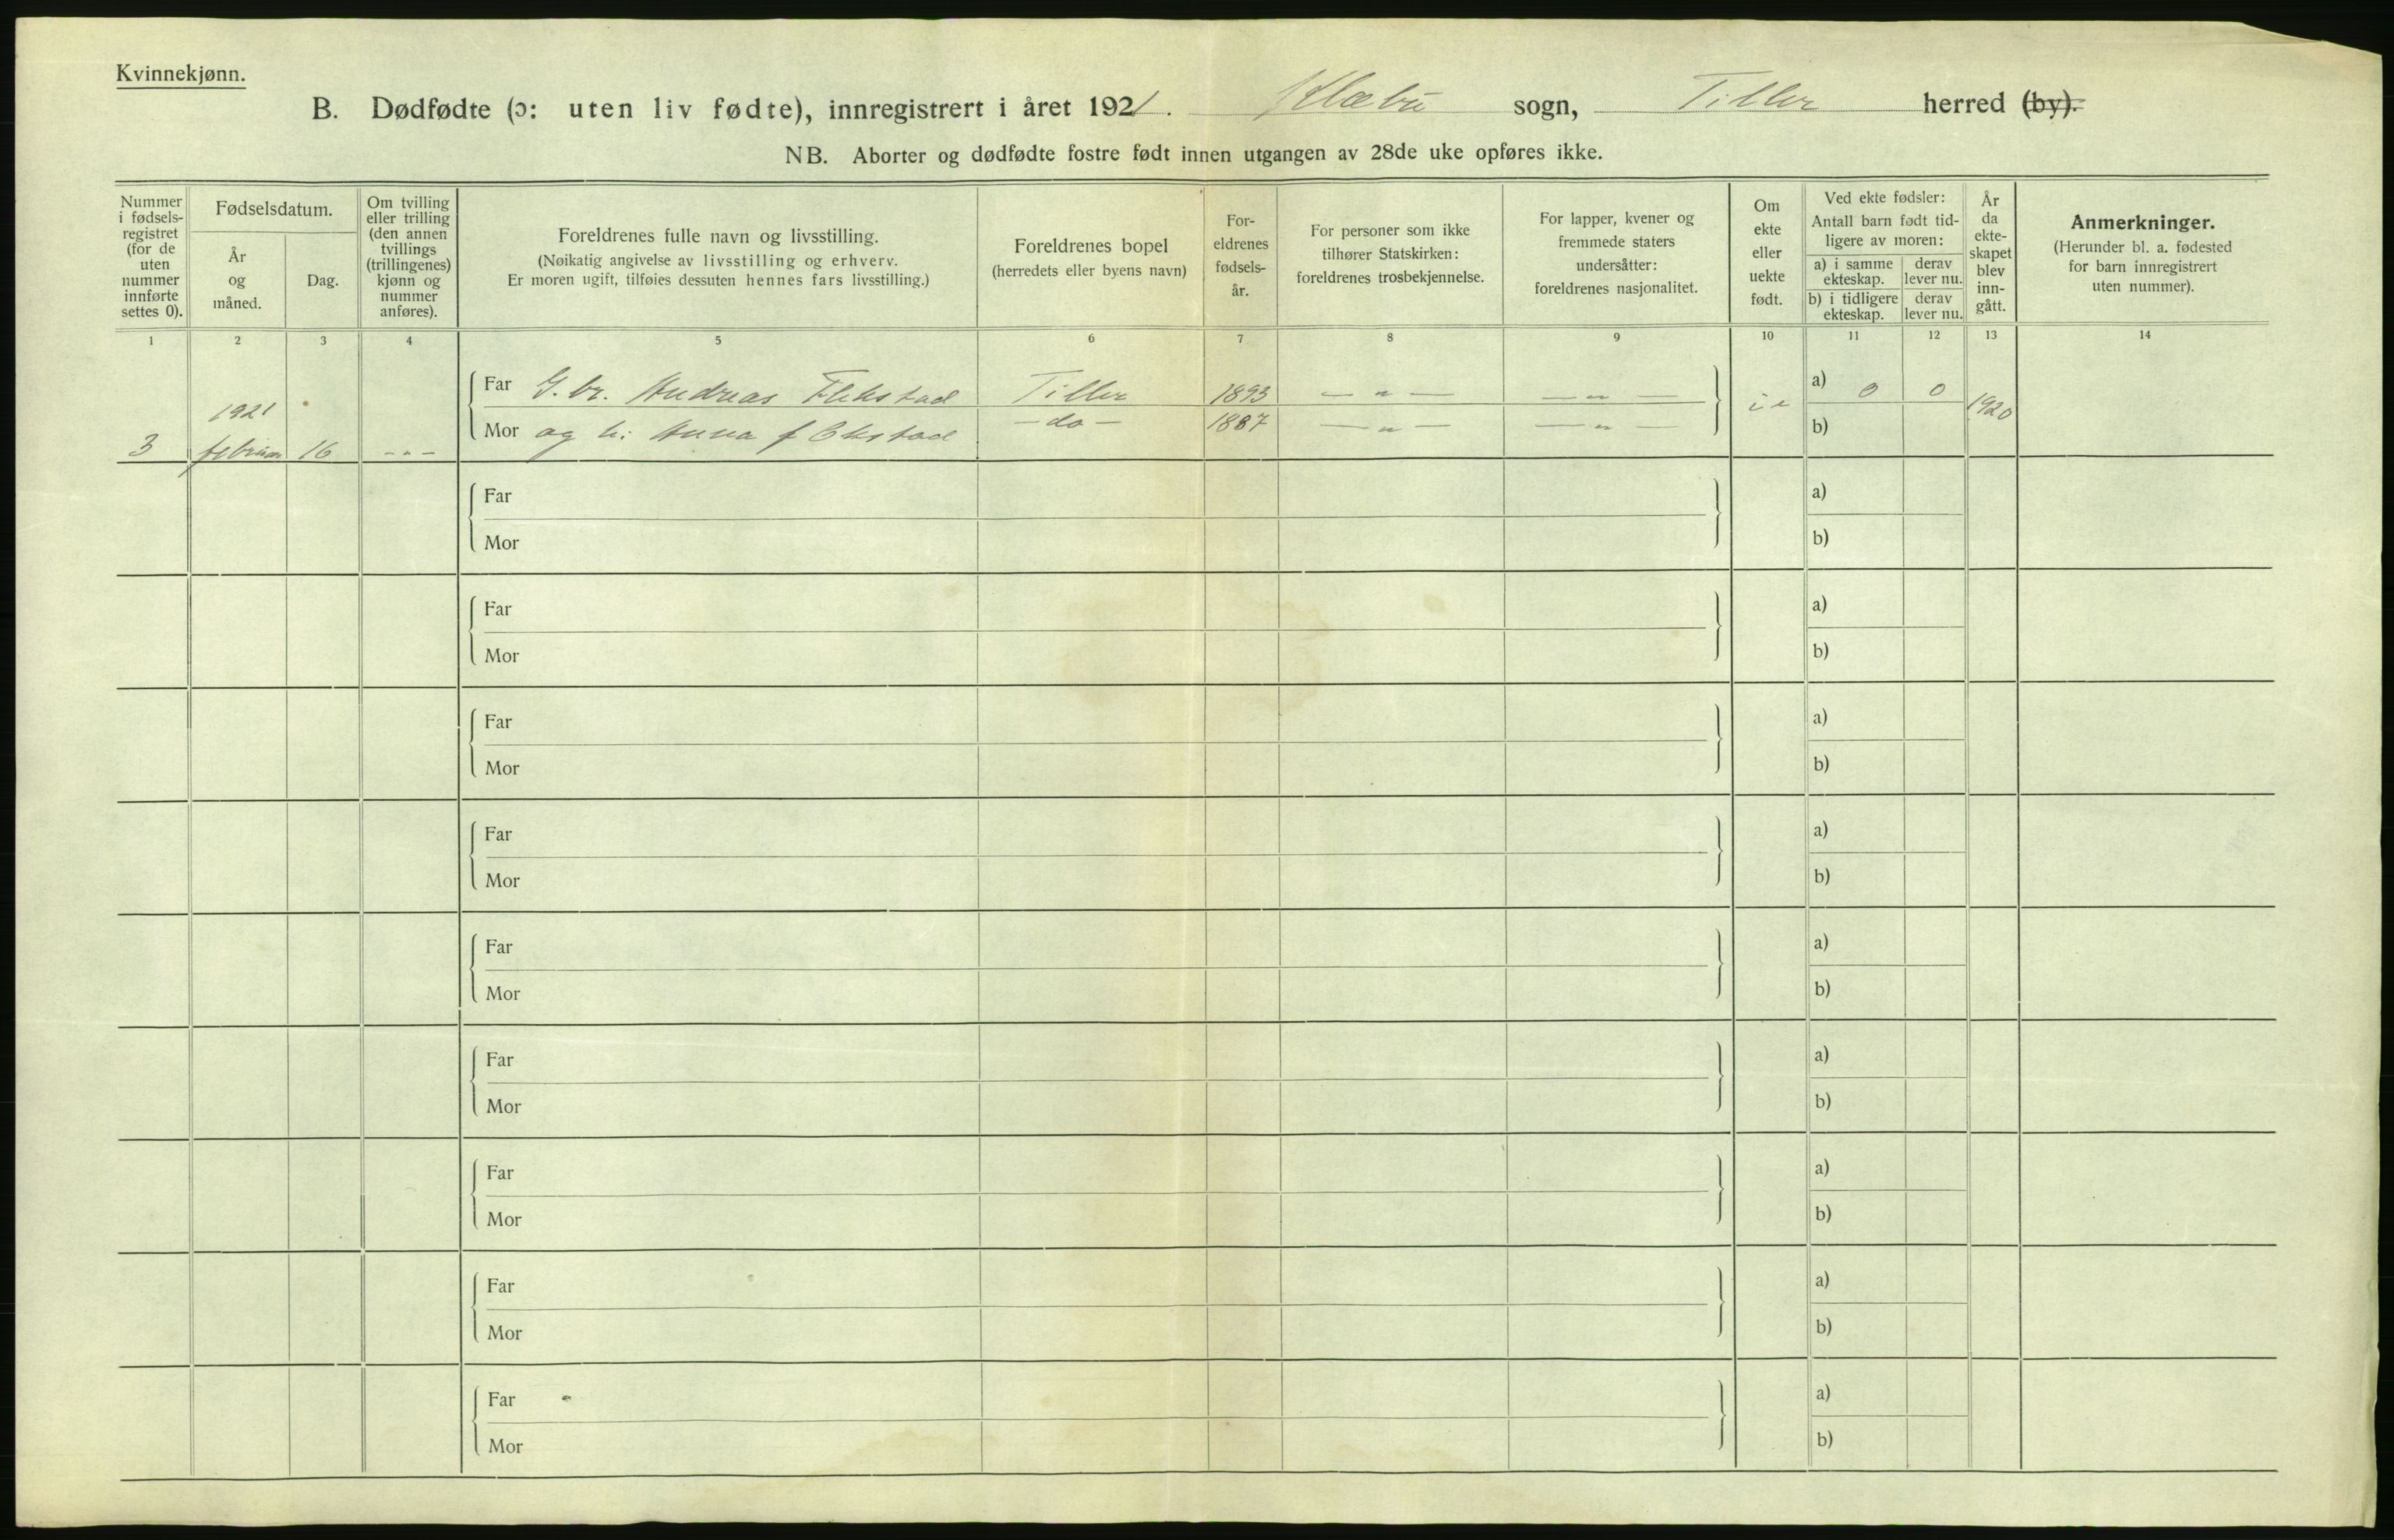 Kvinnekjønn.
B. Dødfødte (ɔ: uten liv fødte), innregistrert i året 1921. Klæbu sogn, Tiller herred (by).
NB. Aborter og dødfødte fostre født innen utgangen av 28de uke opføres ikke.
Nummer
i fødsels-
registret
(for de
uten
nummer
innførte
settes 0).
Fødselsdatum.
År
og
måned.
Dag.
Om tvilling
eller trilling
(den annen
tvillings
(trillingenes)
kjønn og
nummer
anføres).
Foreldrenes fulle navn og livsstilling.
(Nøikatig angivelse av livsstilling og erhverv.
Er moren ugift, tilføies dessuten hennes fars livsstilling.)
Foreldrenes bopel
(herredets eller byens navn)
For-
eldrenes
fødsels-
år.
For personer som ikke
tilhører Statskirken:
foreldrenes trosbekjennelse.
For lapper, kvener og
fremmede staters
undersåtter:
foreldrenes nasjonalitet.
Om
ekte
eller
uekte
født.
Ved ekte fødsler:
Antall barn født tid-
ligere av moren:
a) i samme
ekteskap.
derav
lever nu.
b) i tidligere
ekteskap.
derav
lever nu.
År
da
ekte-
skapet
blev
inn-
gått.
Anmerkninger.
(Herunder bl. a. fødested
for barn innregistrert
uten nummer).
1 2 3 4 5 6 7 8 9 10 11 12 13 14
Far G. br. Andreas Flekstad Tiller 1893 — „ — — „ — a) 0 0
1921 1920
Mor og h: Anna f Ekstad — do — 1887 — „ — — „ — b)
3 februar 16 - „ -
Far a)
Mor b)
Far a)
Mor b)
Far a)
Mor b)
Far a)
Mor b)
Far a)
Mor b)
Far a)
Mor b)
Far a)
Mor b)
Far a)
Mor b)
Far a)
Mor b)